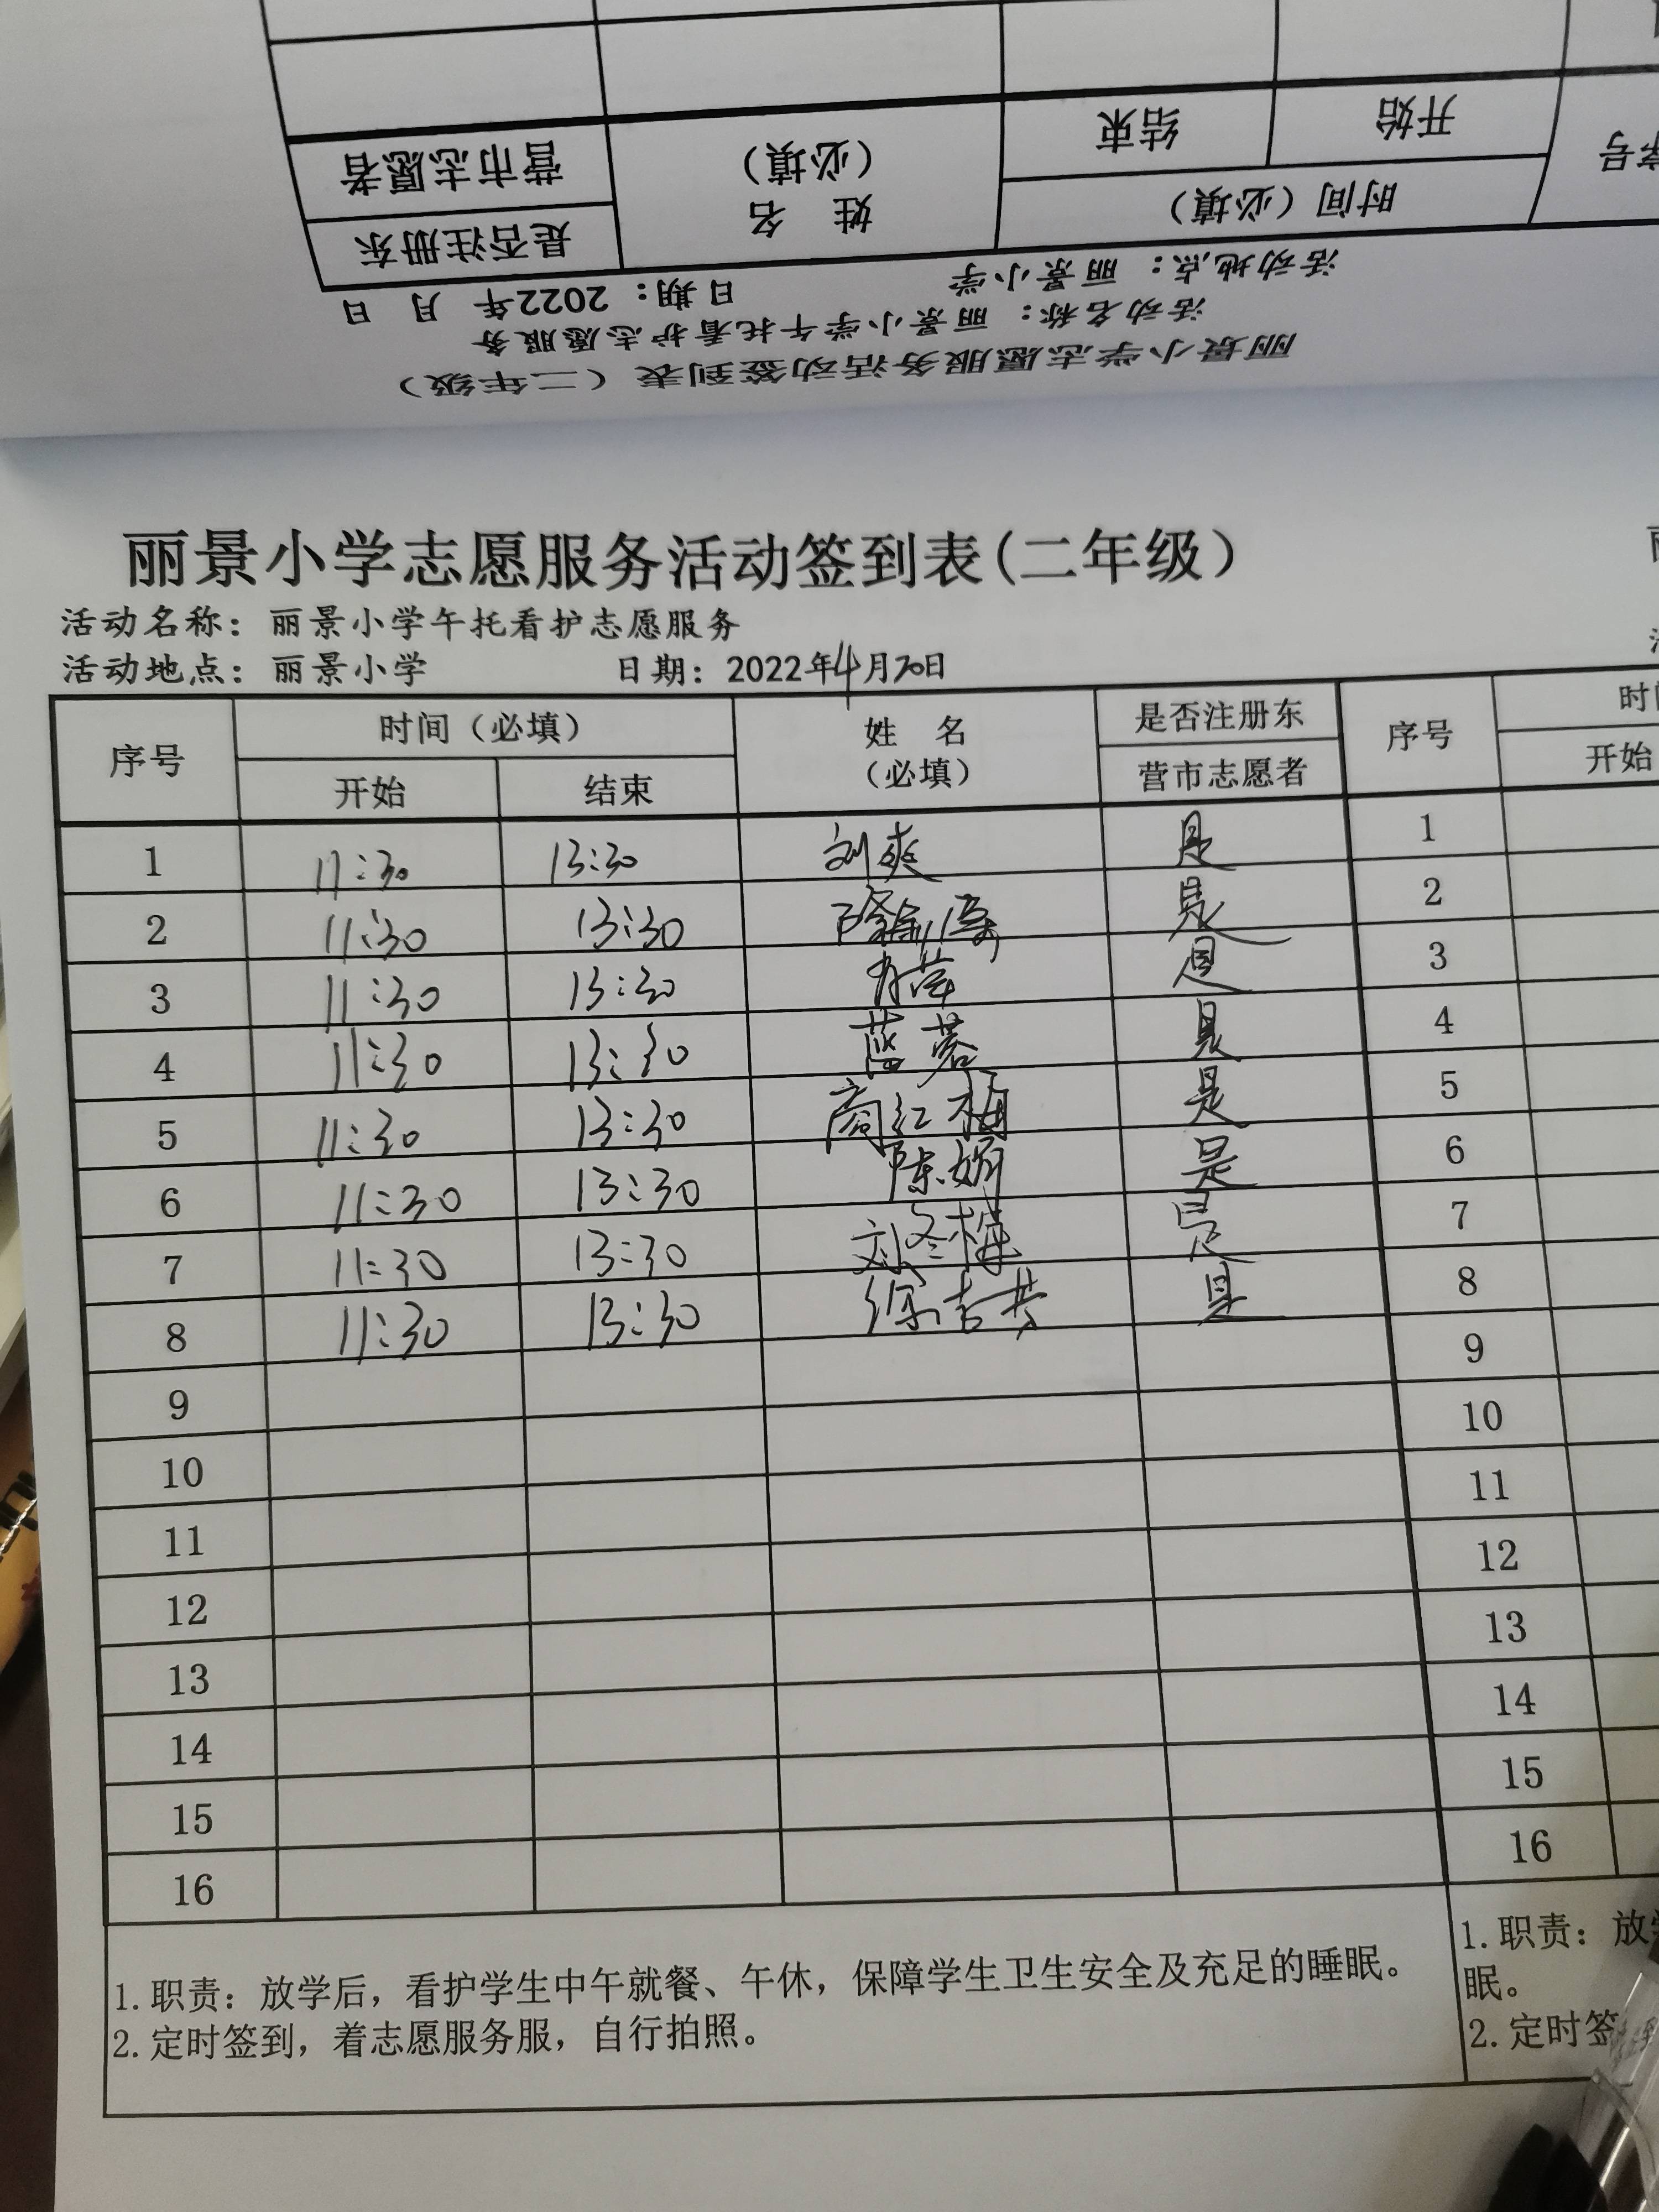 丽景小学志愿服务活动签到表（二年级）
活动名称：丽景小学午托看护志愿服务
活动地点：丽景小学 日期：2022年 月 日
是否注册东
营市志愿者
姓 名
（必填）
时间（必填）
开始 结束
丽景小学志愿服务活动签到表(二年级）
活动名称：丽景小学午托看护志愿服务
活动地点：丽景小学 日期：2022年4月20日
序号 时间（必填） 姓 名 是否注册东 序号
开始 结束 （必填） 营市志愿者 开始
1 11:30 13:30 刘爽 是 1
2 11:30 13:30 是 2
3 11:30 13:30 是 3
4 11:30 13:30 蓝蓉 是 4
5 11:30 13:30 商红梅 是 5
6 11:30 13:30 陈娟 是 6
7 11:30 13:30 刘冬梅 是 7
8 11:30 13:30 徐吉芸 是 8
9 9
10 10
11 11
12 12
13 13
14 14
15 15
16 16
1.职责：放学后，看护学生中午就餐、午休，保障学生卫生安全及充足的睡眠。
2.定时签到，着志愿服务服，自行拍照。
1.职责：放
眠。
2.定时签